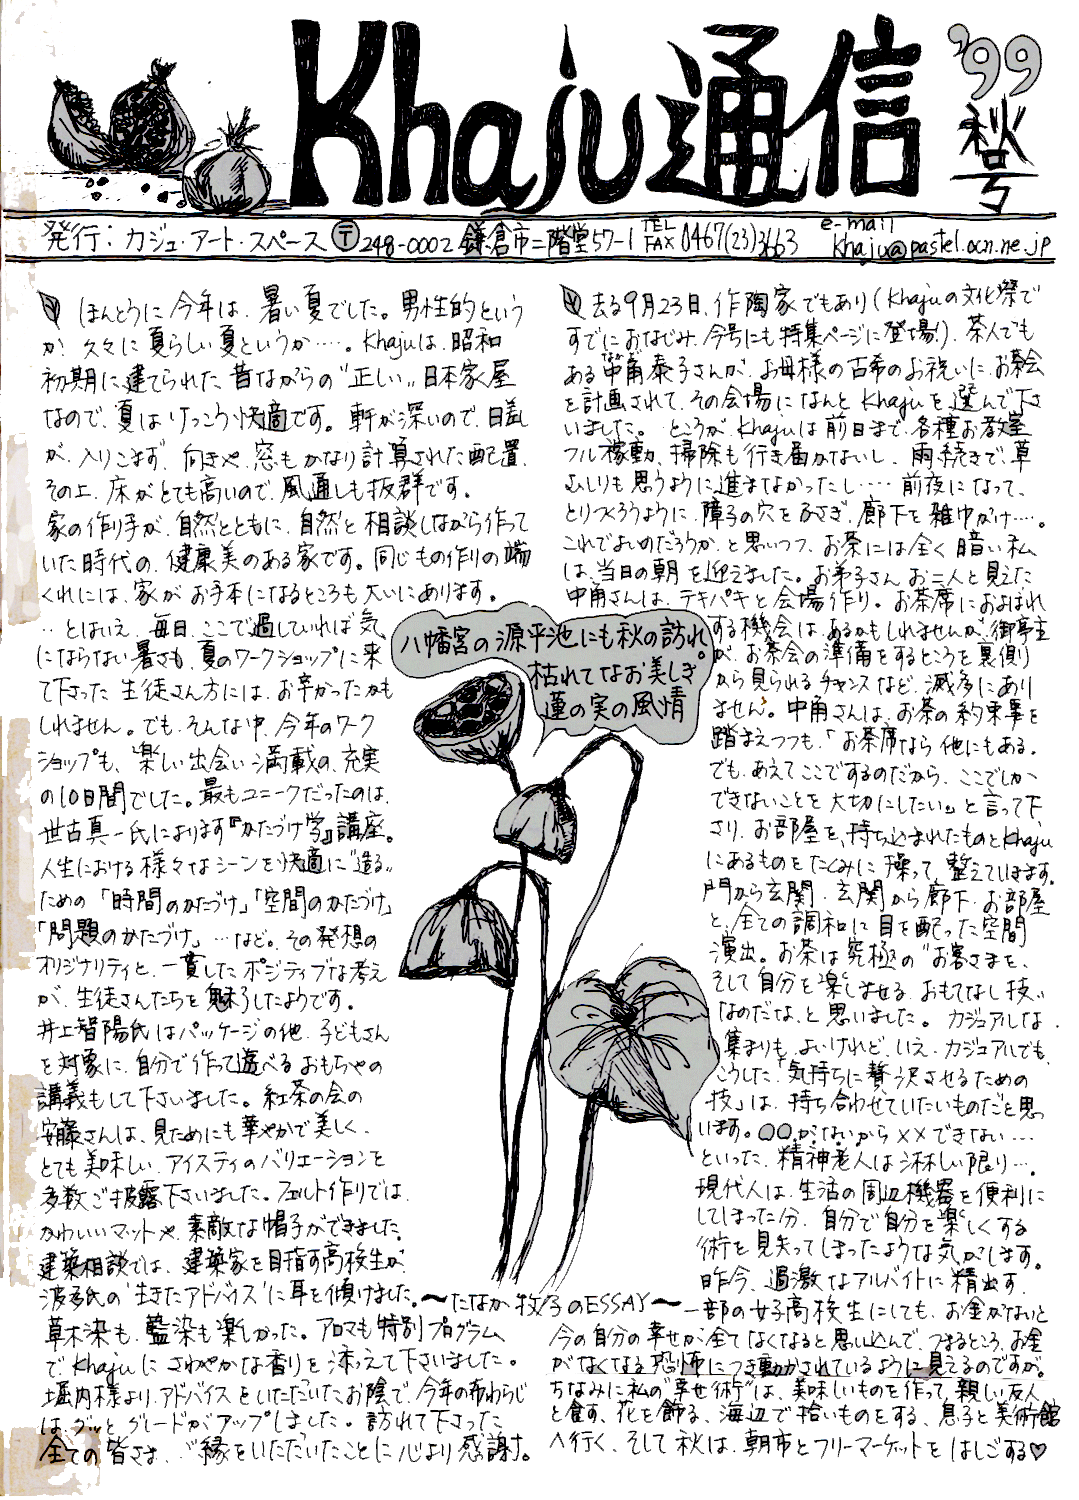 Khaju通信
'99
秋号
発行：カジュ・アート・スペース 〒248-0002 鎌倉市二階堂57-1 TEL FAX 0467(23)3663 e-mail khaju@pastel.ocn.ne.jp
ほんとうに今年は、暑い夏でした。男性的という
か、久々に夏らしい夏というか……。Khajuは、昭和
初期に建てられた昔ながらの"正しい"日本家屋
なので、夏はけっこう快適です。軒が深いので、日差し
が入りこまず、向きや、窓もかなり計算された配置、
その上、床がとても高いので、風通しも抜群です。
家の作り手が、自然とともに、自然と相談しながら作って
いた時代の、健康美のある家です。同じもの作りの端
くれには、家がお手本になるところも大いにあります。
‥とはいえ、毎日、ここで過していれば気
にならない暑さも、夏のワークショップに来
て下さった生徒さん方には、お辛かったかも
しれません。でも、そんな中、今年のワーク
ショップも、楽しい出会い満載の、充実
の10日間でした。最もユニークだったのは、
世古真一氏によります『かたづけ学』講座。
人生における様々なシーンを快適に"造る"
ための「時間のかたづけ」「空間のかたづけ」
「問題のかたづけ」…など。その発想の
オリジナリティと、一貫したポジティブな考え
が、生徒さんたちを魅了したようです。
井上智陽氏はパッケージの他、子どもさん
を対象に、自分で作って遊べるおもちゃの
講義もして下さいました。紅茶の会の
安藤さんは、見ためにも華やかで美しく、
とても美味しい、アイスティのバリエーションを
多数ご披露下さいました。フェルト作りでは、
かわいいマットや、素敵な帽子ができました。
建築相談では、建築家を目指す高校生が、
波多氏の"生きたアドバイス"に耳を傾けました。
草木染も、藍染も楽しかった。アロマも特別プログラム
でKhajuにさわやかな香りを添えて下さいました。
堀内様より、アドバイスをいただいたお陰で、今年の布わらじ
は、グッとグレードがアップしました。訪れて下さった
全ての皆さま、ご縁をいただいたことに心より感謝す。
八幡宮の源平池にも秋の訪れ。
枯れてなお美しき
蓮の実の風情
～たなか牧子のESSAY～
去る9月23日、作陶家でもあり(Khajuの文化祭で
すでにおなじみ、今号にも特集ページに登場)、茶人でも
ある中角泰子さんが、お母様の古希のお祝いに、お茶会
を計画されて、その会場になんとKhajuを選んで下さ
いました。ところが、Khajuは前日まで、各種お教室
フル稼動、掃除も行き届かないし、雨続きで、草
むしりも思うように進まなかったし‥‥前夜になって、
とりつくろうように、障子の穴をふさぎ、廊下を雑巾がけ…。
これでよいのだろうか、と思いつつ、お茶には全く暗い私
は、当日の朝を迎えました。お弟子さんお二人と見えた
中角さんは、テキパキと会場作り。お茶席におよばれ
する機会は、あるかもしれませんが、御亭主
が、お茶会の準備をするところを裏側
から見られるチャンスなど、滅多にあり
ません。中角さんは、お茶の約束事を
踏まえつつも、「お茶席なら他にもある。
でも、あえてここでするのだから、ここでしか
できないことを大切にしたい。」と言って下
さり、お部屋を、持ち込まれたものとKhaju
にあるものをたくみに操って、整えていきます。
門から玄関、玄関から廊下、お部屋
と、全ての調和に目を配った空間
演出。お茶は究極の"お客さまを、
そして自分を楽しませる、おもてなし技"
なのだな、と思いました。カジュアルな
集まりも、よいけれど、いえ、カジュアルでも、
こうした「気持ちに贅沢させるための
技」は、持ち合わせていたいものだと思
います。○○がないから××できない…
といった、精神老人は淋しい限り…。
現代人は、生活の周辺機器を便利に
してしまった分、自分で自分を楽しくする
術を見失ってしまったような気がします。
昨今、過激なアルバイトに精出す
一部の女子高校生にしても、お金がないと
今の自分の幸せが全てなくなると思い込んで、つまるところ、お金
がなくなる恐怖につき動かされているように見えるのですが。
ちなみに私の"幸せ術"は、美味しいものを作って、親しい友人
と食す、花を飾る、海辺で拾いものをする、息子と美術館
へ行く、そして秋は、朝市とフリーマーケットをはしごする♡